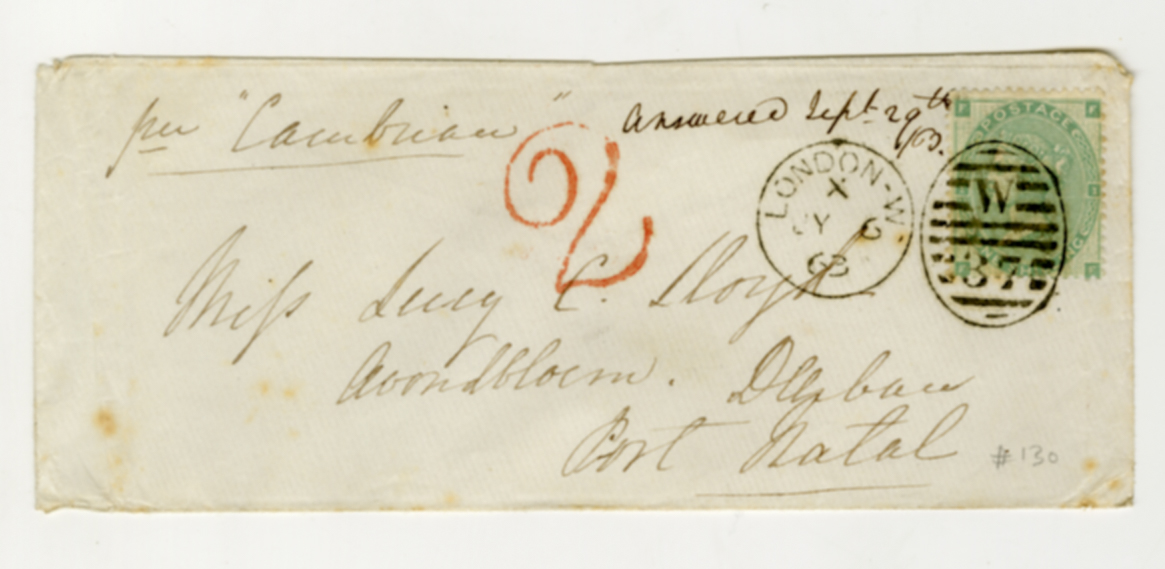 per "Cambrian"
answered Sept 29th
/63.
2
POSTAGE
LONDON-W
X
JY 6
63
W
37
Miss Lucy C. Lloyd
Avondbloem. D'Urban
Port Natal
#130